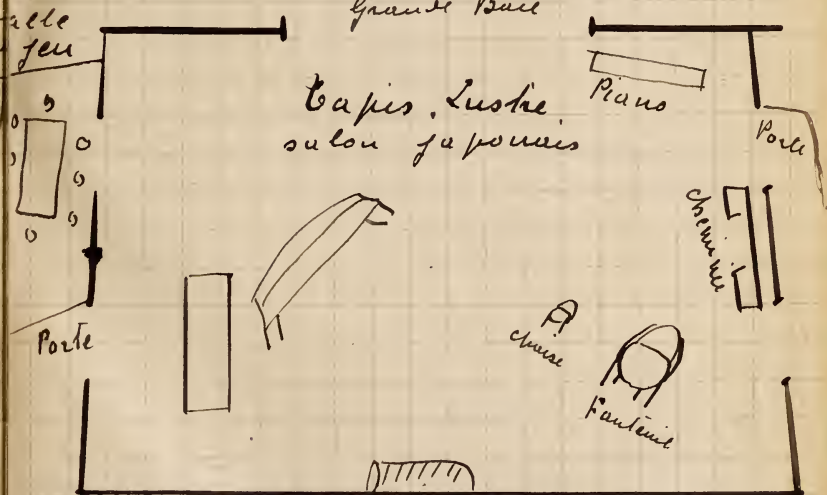 Grande Baie
jeu
Tapis. Lustre
salon japonais
Piano
Porte
cheminée
Porte
chaise
Fauteuil